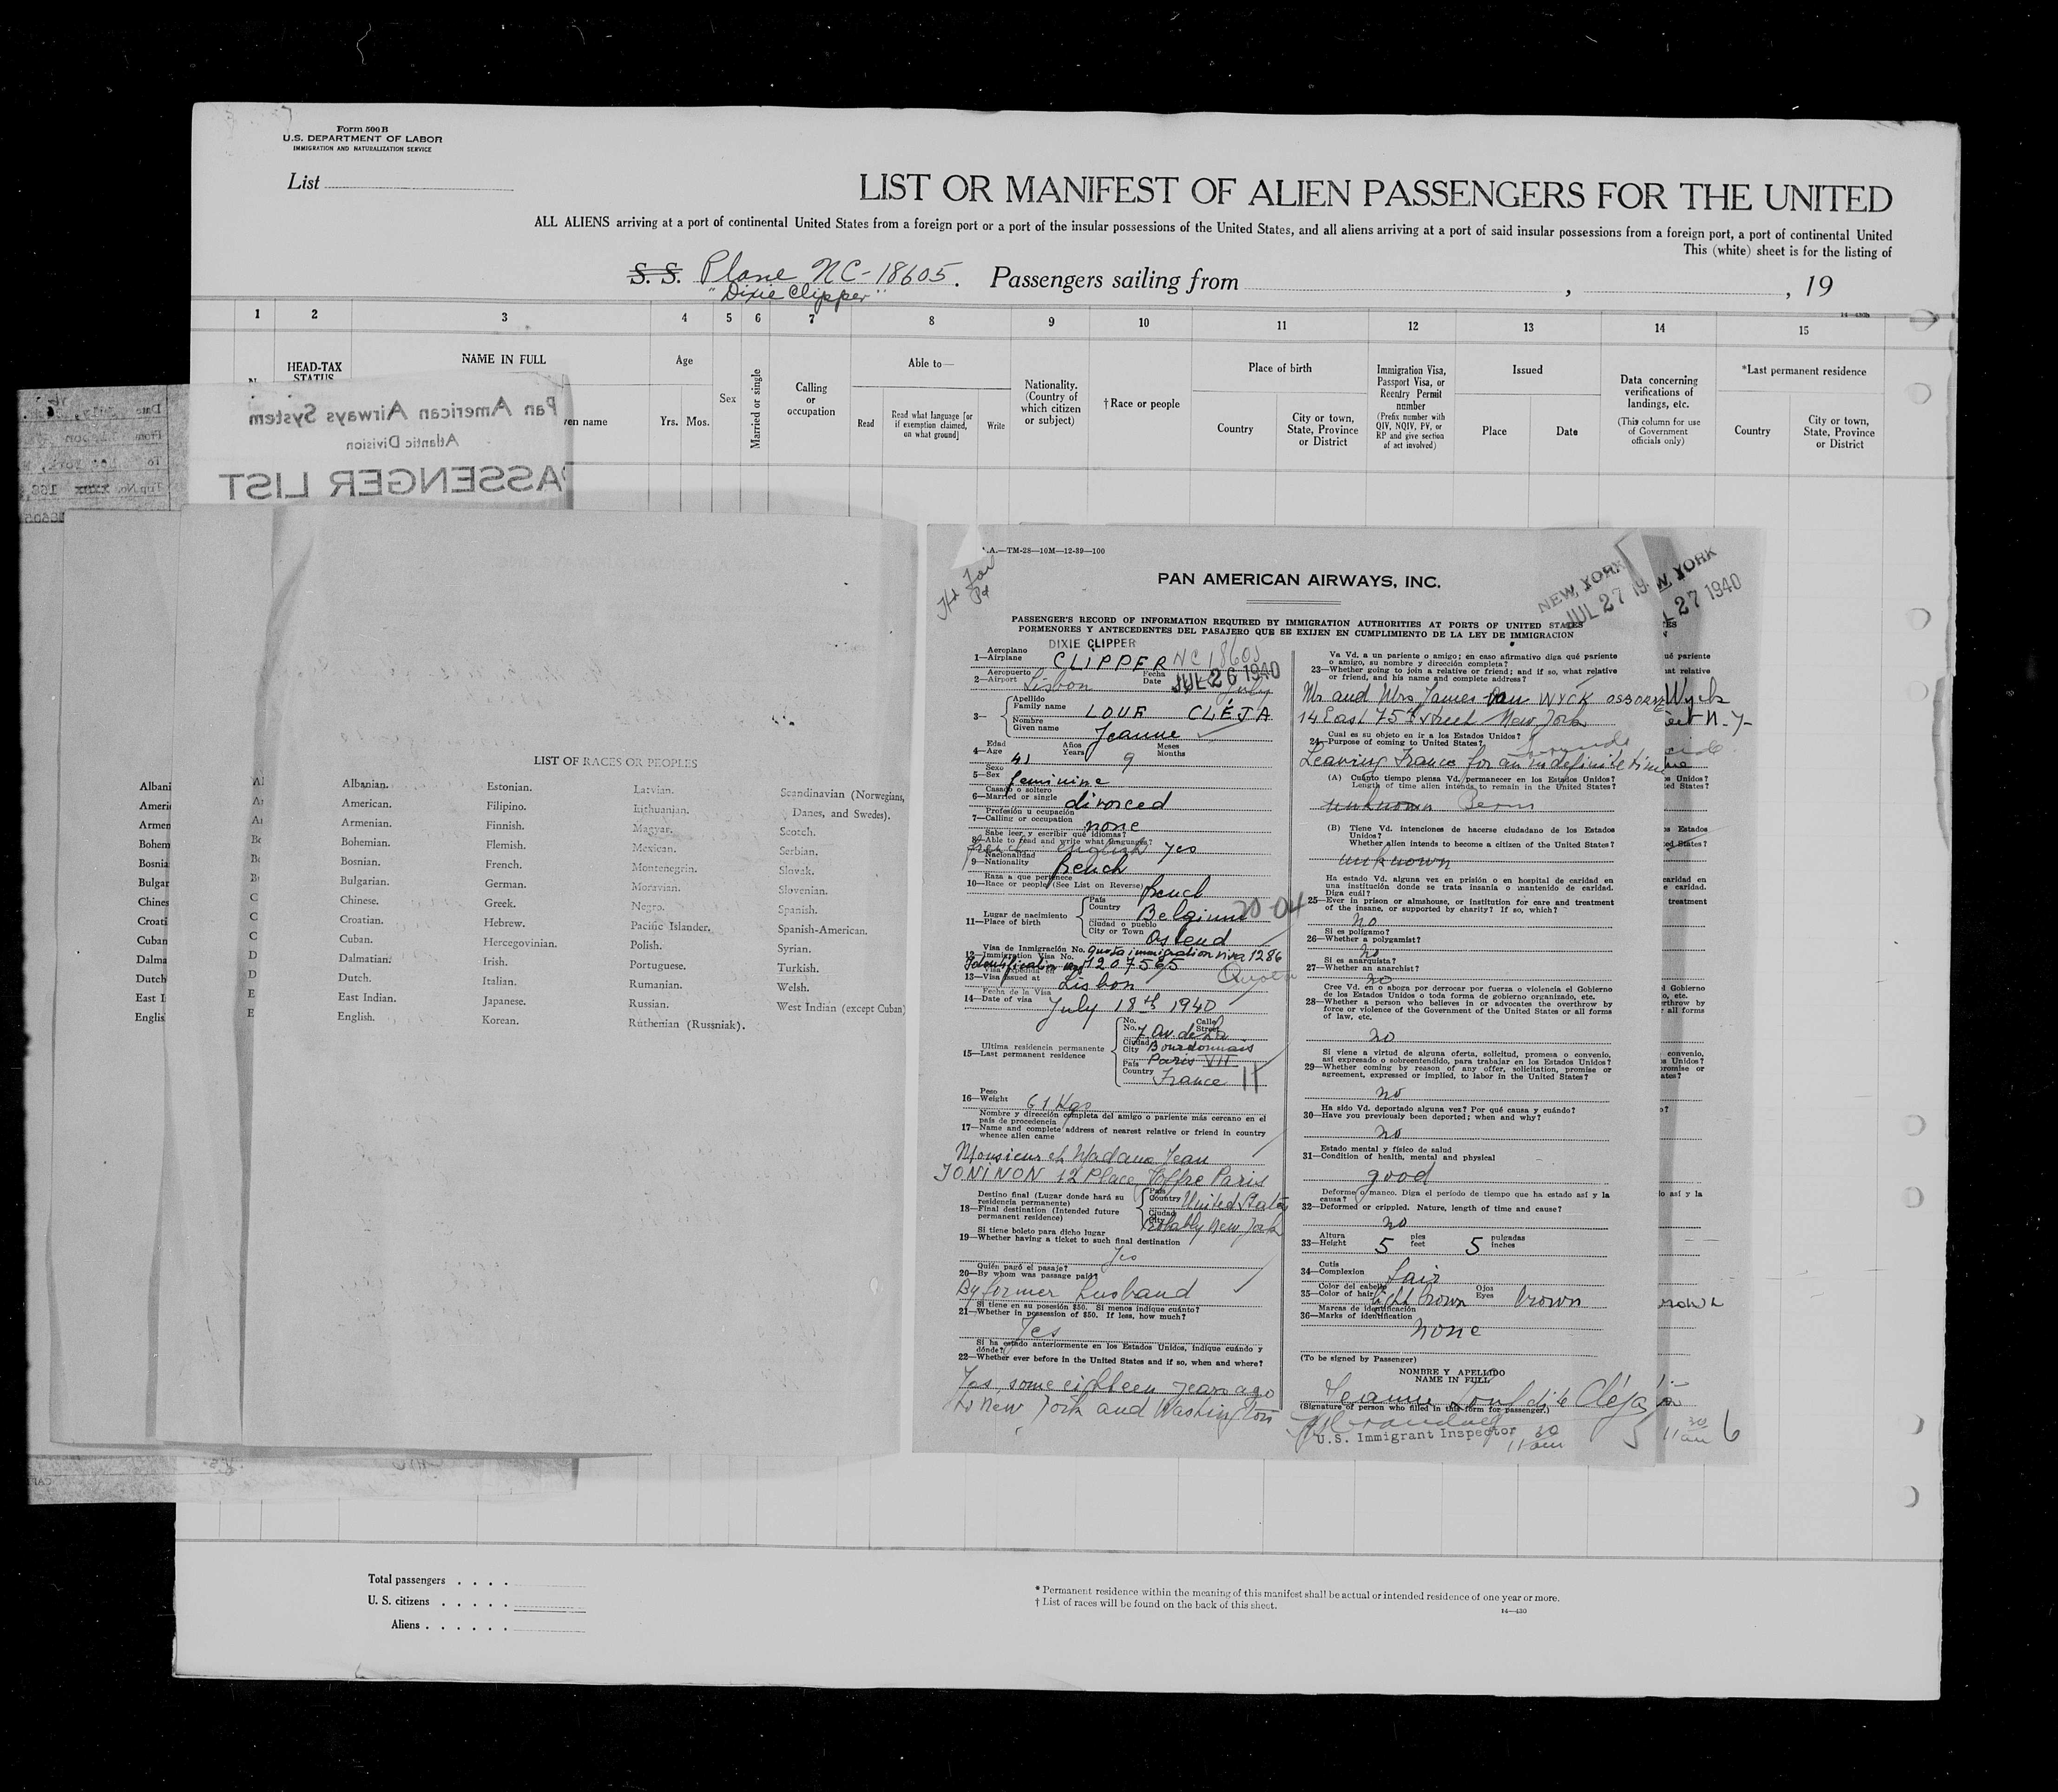 Form 500 B
U.S. DEPARTMENT OF LABOR
IMMIGRATION AND NATURALIZATION SERVICE
List
LIST OR MANIFEST OF ALIEN PASSENGERS FOR THE UNITED
ALL ALIENS arriving at a port of continental United States from a foreign port or a port of the insular possessions of the United States, and all aliens arriving at a port of said insular possessions from a foreign port, a port of continental United
This (white) sheet is for the listing of
S. S. Plane NC-18605. Passengers sailing from , , 19
"Dixie Clipper"
1 2 3 4 5 6 7 8 9 10 11 12 13 14 15
HEAD-TAX STATUS
NAME IN FULL
ven name
Age
Yrs. Mos.
Sex
Married or single
Calling or occupation
Able to—
Read
Read what language [or if exemption claimed, on what ground]
Write
Nationality. (Country of which citizen or subject)
†Race or people
Place of birth
Country
City or town, State, Province or District
Immigration Visa, Passport Visa, or Reentry Permit number
(Prefix number with QIV, NQIV, PV, or RP and give section of act involved)
Issued
Place
Date
Data concerning verifications of landings, etc.
(This column for use of Government officials only)
*Last permanent residence
Country
City or town, State, Province or District
Pan American Airways System
Atlantic Division
PASSENGER LIST
LIST OF RACES OR PEOPLES
Albanian.
American.
Armenian.
Bohemian.
Bosnian.
Bulgarian.
Chinese.
Croatian.
Cuban.
Dalmatian.
Dutch.
East Indian.
English.
Estonian.
Filipino.
Finnish.
Flemish.
French.
German.
Greek.
Hebrew.
Hercegovinian.
Irish.
Italian.
Japanese.
Korean.
Latvian.
Lithuanian.
Magyar.
Mexican.
Montenegrin.
Moravian.
Negro.
Pacific Islander.
Polish.
Portuguese.
Rumanian.
Russian.
Ruthenian (Russniak).
Scandinavian (Norwegians,
Danes, and Swedes).
Scotch.
Serbian.
Slovak.
Slovenian.
Spanish.
Spanish-American.
Syrian.
Turkish.
Welsh.
West Indian (except Cuban)
.A.—TM-28—10M—12-39—100
PAN AMERICAN AIRWAYS, INC.
NEW YORK
JUL 27 19
W YORK
L 27 1940
PASSENGER'S RECORD OF INFORMATION REQUIRED BY IMMIGRATION AUTHORITIES AT PORTS OF UNITED STATES
PORMENORES Y ANTECEDENTES DEL PASAJERO QUE SE EXIJEN EN CUMPLIMIENTO DE LA LEY DE IMMIGRACION
DIXIE CLIPPER
Aeroplano
1—Airplane CLIPPER NC 18605
Aeropuerto
2—Airport Lisbon Fecha Date JUL 26 1940 July
3— Apellido Family name LOUF CLÉJA
Nombre Given name Jeanne
Edad
4—Age 41 Años Years 9 Meses Months
Sexo
5—Sex feminine
Casado o soltero
6—Married or single divorced
Profesión u ocupación
7—Calling or occupation none
Sabe leer y escribir qué idiomas?
8—Able to read and write what languages?
french english yes
Nacionalidad
9—Nationality french
Raza a que pertenece
10—Race or people (See List on Reverse) french
Lugar de nacimiento
11—Place of birth
País Country Belgium 20-04
Ciudad o pueblo City or Town Ostend
Visa de Inmigración No.
12—Immigration Visa No. Quota immigration visa 1286
Identification 1207565
13—Visa issued at Lisbon Quota
Fecha de la Visa
14—Date of visa July 18th 1940
Ultima residencia permanente
15—Last permanent residence
No. Calle Street 7 Av. de La
Ciudad City Bourdonnais
Paris VII
País Country France 11
Peso
16—Weight 61 Kgs
Nombre y dirección completa del amigo o pariente más cercano en el
país de procedencia
17—Name and complete address of nearest relative or friend in country
whence alien came
Monsieur et Madame Jean
JONINON 12 Place Joffre Paris
Destino final (Lugar donde hará su
residencia permanente)
18—Final destination (Intended future
permanent residence)
País Country United States
Ciudad City Probably New York
Si tiene boleto para dicho lugar
19—Whether having a ticket to such final destination
Yes
Quién pagó el pasaje?
20—By whom was passage paid?
By former husband
Si tiene en su posesión $50. Si menos indique cuánto?
21—Whether in possession of $50. If less, how much?
Yes
Si ha estado anteriormente en los Estados Unidos, indique cuándo y
dónde?
22—Whether ever before in the United States and if so, when and where?
Yes, some eighteen years ago
to New York and Washington
Va Vd. a un pariente o amigo; en caso afirmativo diga qué pariente
o amigo, su nombre y dirección completa?
23—Whether going to join a relative or friend; and if so, what relative
or friend, and his name and complete address?
Mr and Mrs James Van WYCK OSBORNE
14 East 75th street New York
Cual es su objeto en ir a los Estados Unidos?
24—Purpose of coming to United States?
Leaving France for an indefinite time
(A) Cuánto tiempo piensa Vd. permanecer en los Estados Unidos?
Length of time alien intends to remain in the United States?
unknown Perm
(B) Tiene Vd. intenciones de hacerse ciudadano de los Estados
Unidos?
Whether alien intends to become a citizen of the United States?
unknown
Ha estado Vd. alguna vez en prisión o en hospital de caridad en
una institución donde se trata insania o mantenido de caridad.
Diga cuál?
25—Ever in prison or almshouse, or institution for care and treatment
of the insane, or supported by charity? If so, which?
no
Si es polígamo?
26—Whether a polygamist?
no
Si es anarquista?
27—Whether an anarchist?
no
Cree Vd. en o aboga por derrocar por fuerza o violencia el Gobierno
de los Estados Unidos o toda forma de gobierno organizado, etc.
28—Whether a person who believes in or advocates the overthrow by
force or violence of the Government of the United States or all forms
of law, etc.
no
Si viene a virtud de alguna oferta, solicitud, promesa o convenio,
así expresado o sobreentendido, para trabajar en los Estados Unidos?
29—Whether coming by reason of any offer, solicitation, promise or
agreement, expressed or implied, to labor in the United States?
no
Ha sido Vd. deportado alguna vez? Por qué causa y cuándo?
30—Have you previously been deported; when and why?
no
Estado mental y físico de salud
31—Condition of health, mental and physical
good
Deforme o manco. Diga el período de tiempo que ha estado así y la
causa?
32—Deformed or crippled. Nature, length of time and cause?
no
Altura
33—Height 5 pies feet 5 pulgadas inches
Cutis
34—Complexion fair
Color del cabello
35—Color of hair light brown Ojos Eyes brown
Marcas de identificación
36—Marks of identification
none
(To be signed by Passenger)
NOMBRE Y APELLIDO
NAME IN FULL
Jeanne Louf dite Cléja
(Signature of person who filled in this form for passenger.)
U.S. Immigrant Inspector
11 30 am 5
11 30 am 6
Total passengers . . . .
U. S. citizens . . . . .
Aliens . . . . . .
* Permanent residence within the meaning of this manifest shall be actual or intended residence of one year or more.
† List of races will be found on the back of this sheet.
14—430